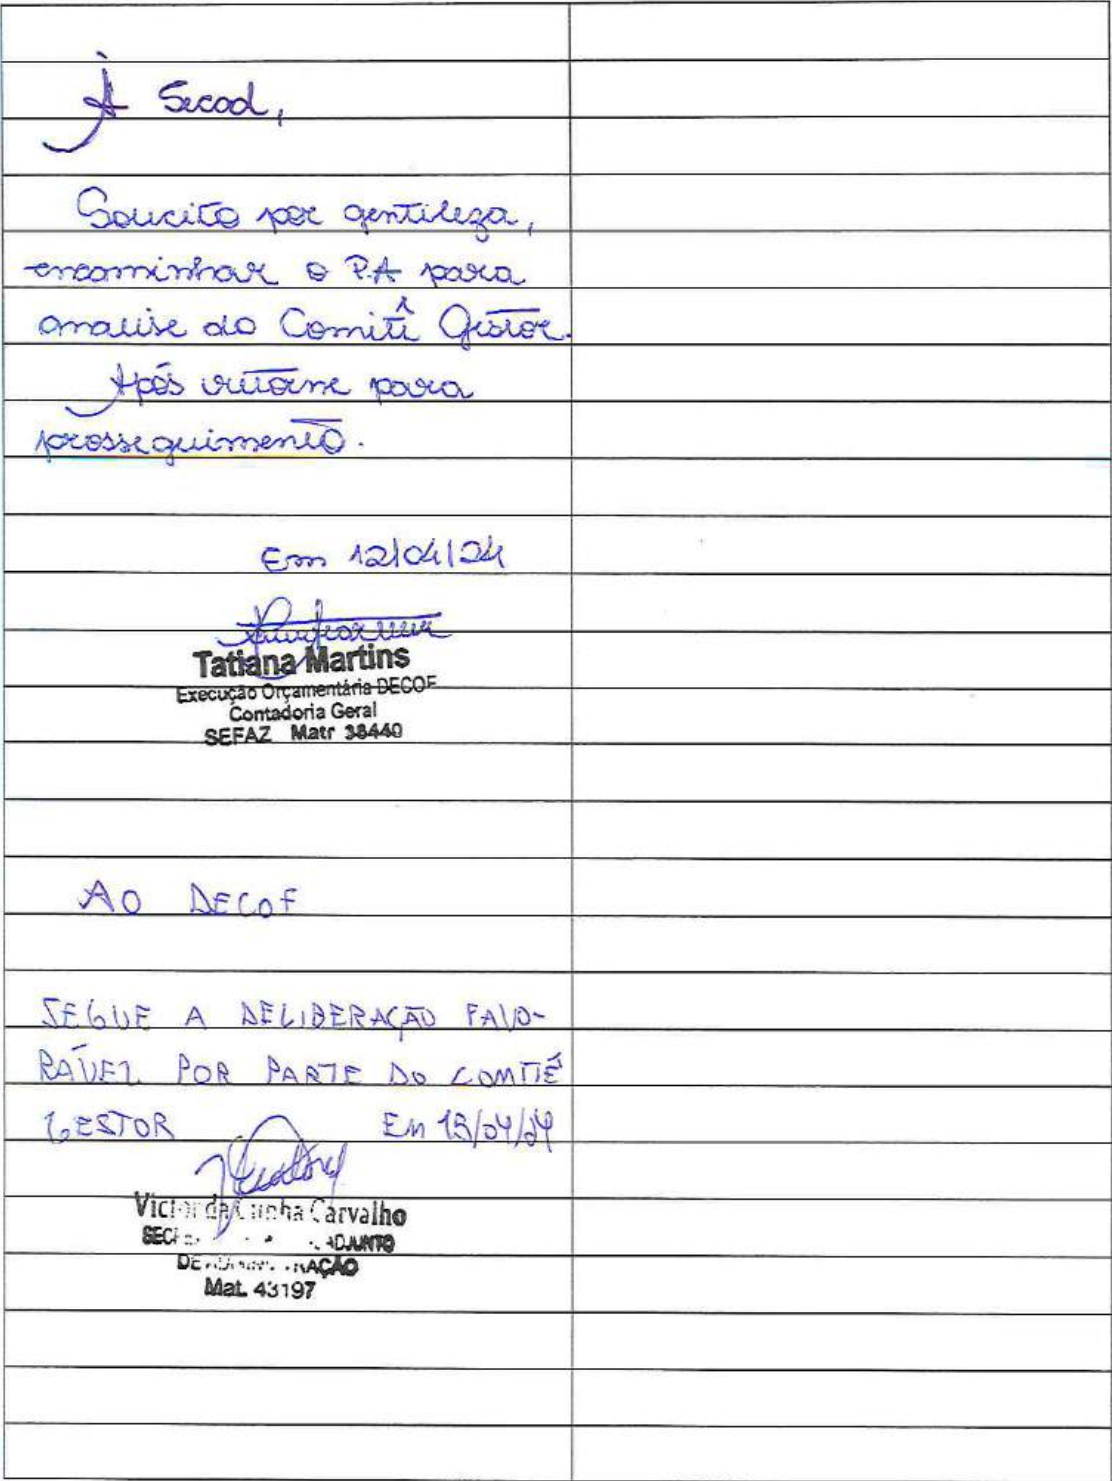 À Secad,
Solicito por gentileza,
encaminhar o P.A para
analise do Comitê Gestor.
Após retorne para
prosseguimento.
Em 12/04/24
Tatiana Martins
Execução Orçamentária DECOF
Contadoria Geral
SEFAZ Matr 38440
AO DECOF
SEGUE A DELIBERAÇÃO FAVO-
RÁVEL POR PARTE DO COMITÊ
GESTOR EM 15/04/24
Victor da Cunha Carvalho
ADJUNTO
DE
Mat. 43197